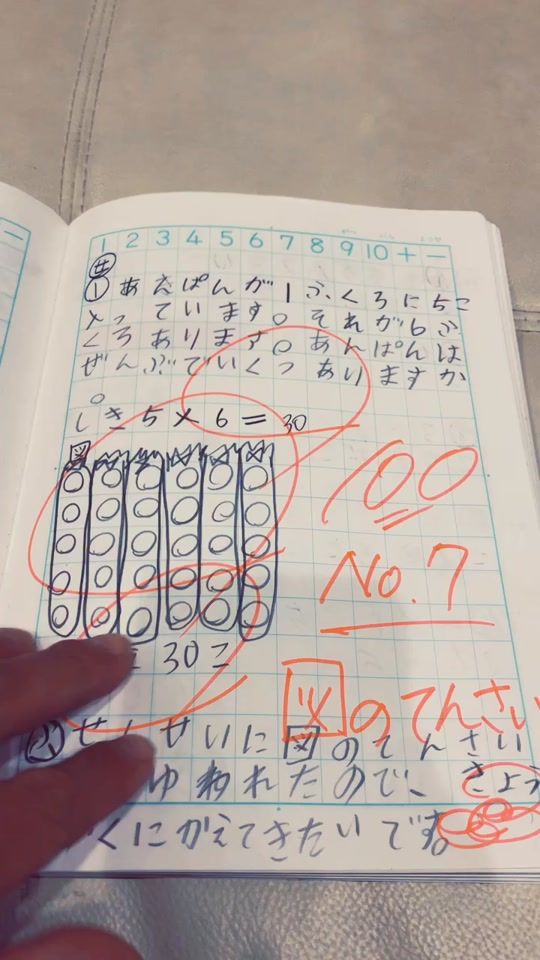 1 2 3 4 5 6 7 8 9 10 + −
① あんぱんが1ふくろに5こ
入っています。それが6ふ
くろあります。あんぱんは
ぜんぶでいくつ ありますか
。
しき 5×6=30
図
30こ
100
No.7
図のてんさい
ふ せんせいに図のてんさい
ゆわれたので、きょう
くにかえてきたいです。